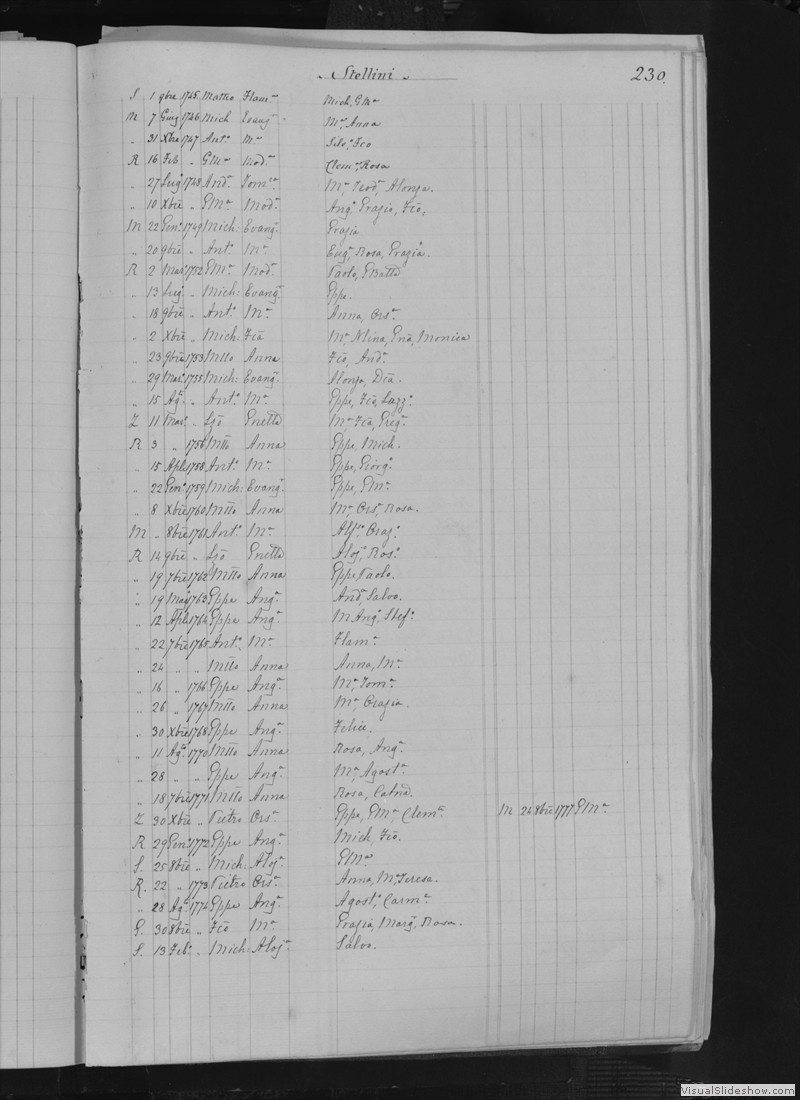 Stellini 230.
S 1 9bre 1745 Matteo Flam.a Mich, GMa
M 7 Giug 1746 Mich Evang.a Ma, Anna
„ 31 Xbre 1747 Ant.o Ma Silv.o, Fco
R 16 Feb „ GMa Mod.a Clem.a, Rosa
„ 27 Lug 1748 And.a Tom.a Ma, Teod.a, Alonza.
„ 10 Xbre „ GMa Mod.a Ang.o, Grazio, Fco,
M 22 Gen.o 1749 Mich: Evang.a Grazia
„ 20 9bre „ Ant.o Ma Eug.a, Rosa, Grazia.
R 2 Mar. 1752 GMa Mod.a Paolo, GBatta
„ 13 Lug. „ Mich: Evang.a Gppe.
„ 18 9bre „ Ant.o Ma Anna, Ors.a
„ 2 Xbre „ Mich: Fca Ma, Nlina, Gna, Monica
„ 23 9bre 1753 Mtto Anna Fco, And.a
„ 29 Mar. 1755 Mich: Evang.a Alonzo, Dca.
„ 15 Ag. „ Ant.o Ma Gppe, Fco, Lazz.o
Z 11 Mar. „ Ljo Gnetta Ma, Fca, Greg.a
R 3 „ 1756 Mtto Anna Gppe, Mich.
„ 15 Aple 1758 Ant.o Ma Gppe, Giorg.o
„ 22 Gen.o 1759 Mich: Evang.a Gppe, GMa
„ 8 Xbre 1760 Mtto Anna Ma, Ors.a, Rosa.
M „ 8bre 1761 Ant.o Ma Alf.o, Oraz.o
R 14 9bre „ Ljo Gnetta Aloj.o, Ros.o
„ 19 7bre 1762 Mtto Anna Gppe, Paolo.
„ 19 Mag 1763 Gppe Ang.a And.a, Salvo.
„ 12 Aple 1764 Gppe Ang.a M Ang.o, Stef.o
„ 22 7bre 1765 Ant.o Ma Flam.a
„ 24 „ „ Mtto Anna Anna, Ma
„ 16 „ 1766 Gppe Ang.a Ma, Tom.a
„ 26 „ 1767 Mtto Anna Ma, Grazia.
„ 30 Xbre 1768 Gppe Ang.a Felice.
„ 11 Ag. 1770 Mtto Anna Rosa, Ang.a
„ 28 „ „ Gppe Ang.a Ma, Agost.a
„ 18 7bre 1771 Mtto Anna Rosa, Catna.
Z 30 Xbre „ Pietro Ors.a Gppe, GMa, Clem.a M 24 8bre 1777 GMa
R 29 Gen.o 1772 Gppe Ang.a Mich, Fco.
S. 25 8bre „ Mich: Aloj.a GMa
R. 22 „ 1773 Pietro Ors.a Anna, Ma, Teresa.
„ 28 Ag. 1774 Gppe Ang.a Agost.o, Carm.a
G. 30 8bre „ Fco Ma Grazia, Marg.a, Rosa.
S. 13 Feb. „ Mich: Aloj.a Salvo.
VisualSlideshow.com